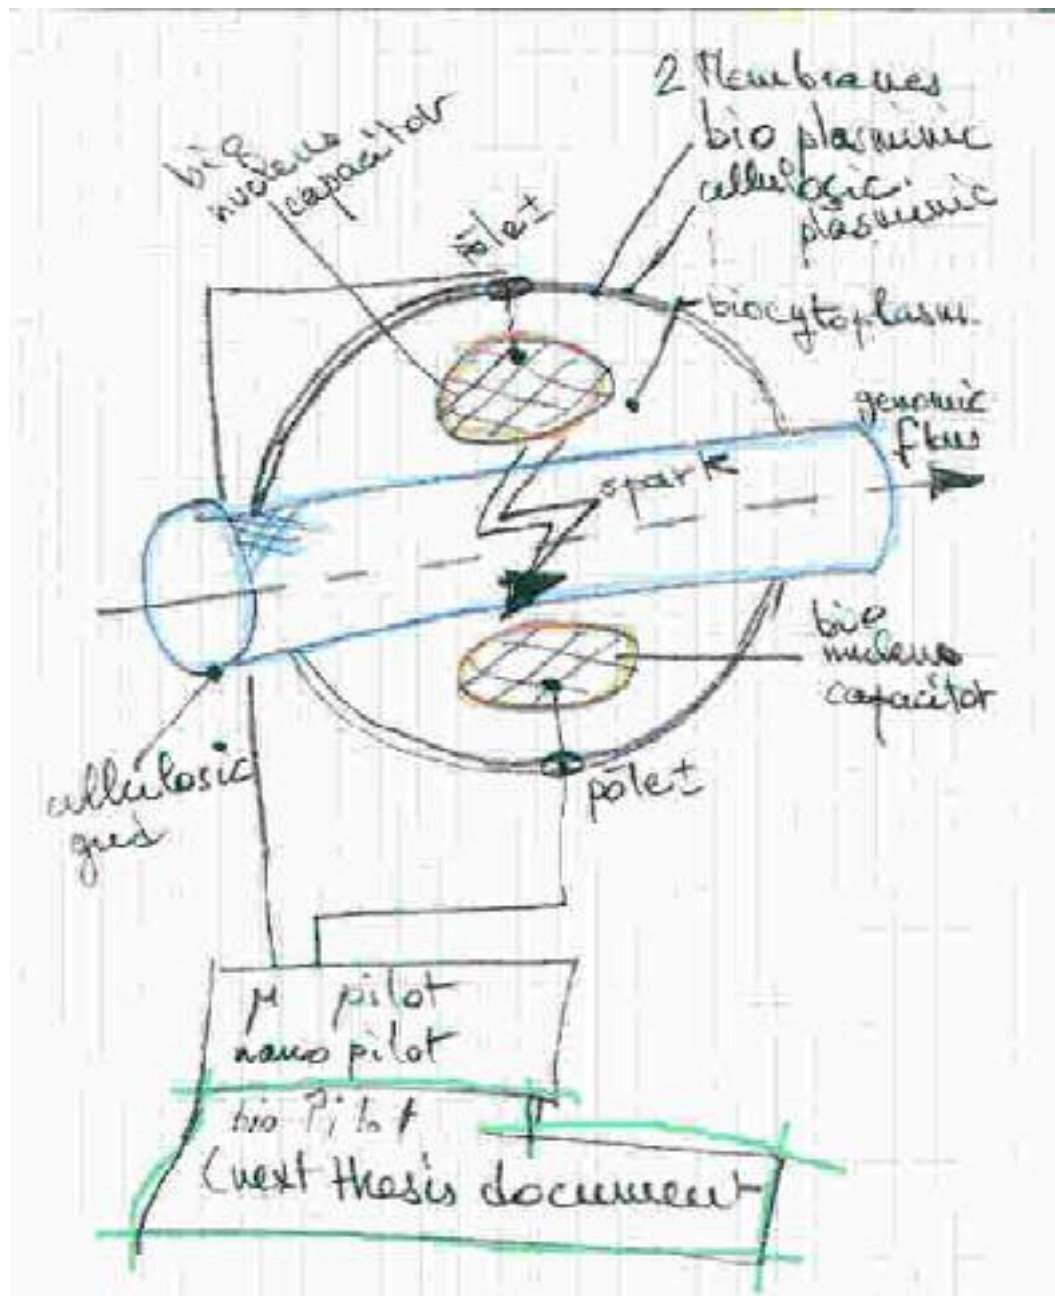 2 Membranes
bio plasmimic
cellulosic
plasmimic
bio
nucleus
capacitor
pole±
biocytoplasm
genomic
flux
spark
bio
nucleus
capacitor
cellulosic
pole±
µ pilot
nano pilot
bio Pilot
(next thesis document